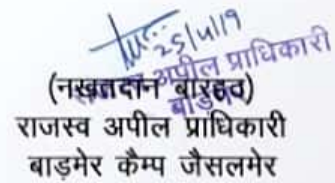 25/4/19
राजस्व अपील प्राधिकारी
बाड़मेर
(नखतदान बारहठ)
राजस्व अपील प्राधिकारी
बाड़मेर कैम्प जैसलमेर